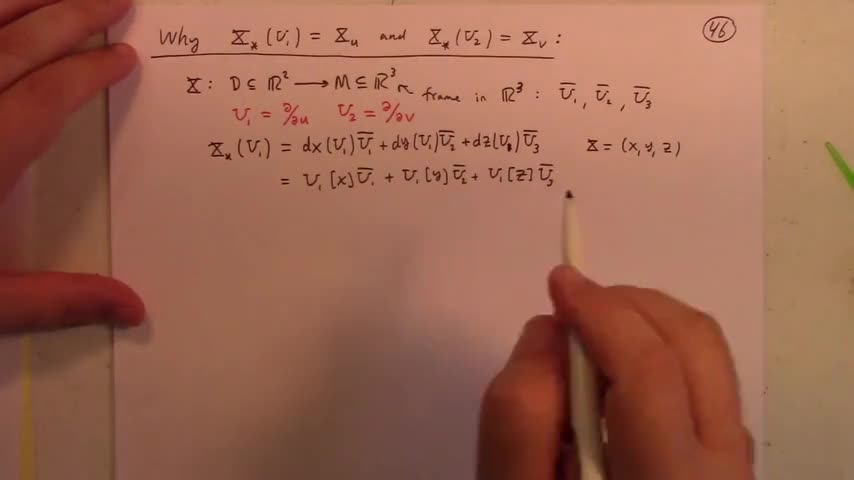 46
Why 𝕏_*(U₁) = 𝕏_u and 𝕏_*(U₂) = 𝕏_v :
𝕏 : D ⊆ ℝ² ⟶ M ⊆ ℝ³ ↖ frame in ℝ³ : Ū₁, Ū₂, Ū₃
U₁ = ∂/∂u U₂ = ∂/∂v
𝕏_*(U₁) = dx(U₁)Ū₁ + dy(U₁)Ū₂ + dz(U₁)Ū₃ 𝕏 = (x, y, z)
= U₁[x]Ū₁ + U₁[y]Ū₂ + U₁[z]Ū₃